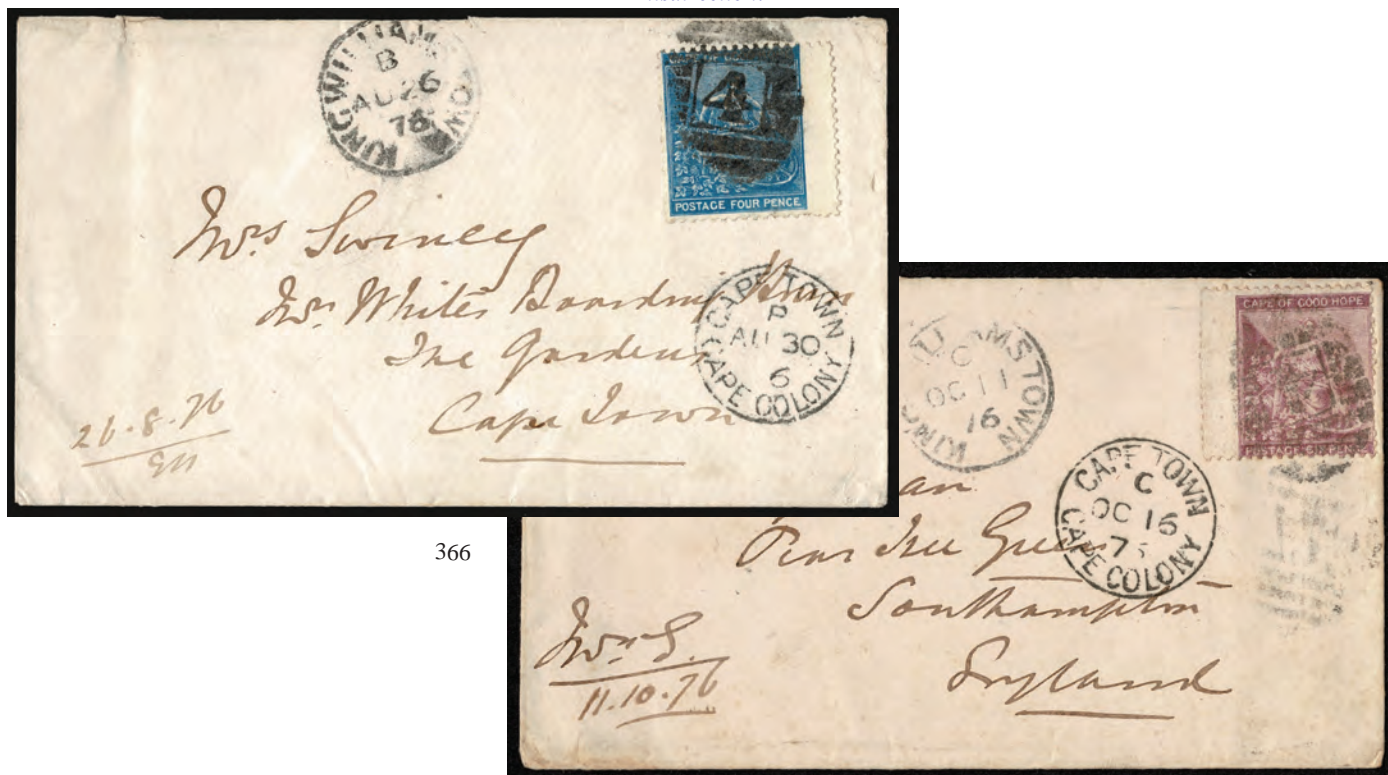 KINGWILLIAMSTOWN
B
AU 26
76
4
POSTAGE FOUR PENCE
Mrs Swiney
Mrs White's Boarding House
The Gardens
Cape Town
26.8.76
CAPE TOWN
AU 30
6
CAPE COLONY
366
CAPE OF GOOD HOPE
POSTAGE SIX PENCE
KING LLIAMSTOWN
C
OC 11
76
CAPE TOWN
C
OC 16
7
CAPE COLONY
an
Pear Tree Green
Southampton
England
11.10.76